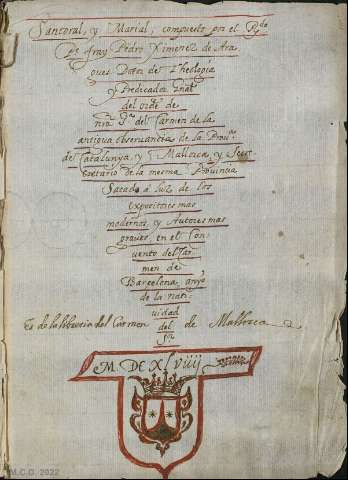 Santoral, y Marial, compuesto por el Rdo
Pe fray Pedro Ximenez de Ara
ques Dotor de Theologia
y Predicador Gnal
del ordē de
nra Sra del Carmen de la
antigua observancia de la Prouia
de Catalunya, y Mallorca, y Secr
etario de la mesma Prouincia
Sacado à luz de los
expositores mas
modernos, y Autores mas
graues, en el Con
uento del Car
men de
Barcelona anyo
de la nati
uidad
Es de la libreria del Carmen de Mallorca
del
Sr
M. DC XLVIIIJ
M.C.C. 2022